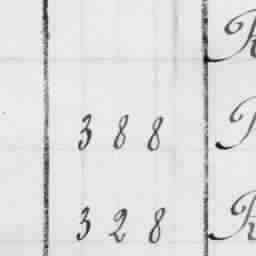 3 8 8
3 2 8